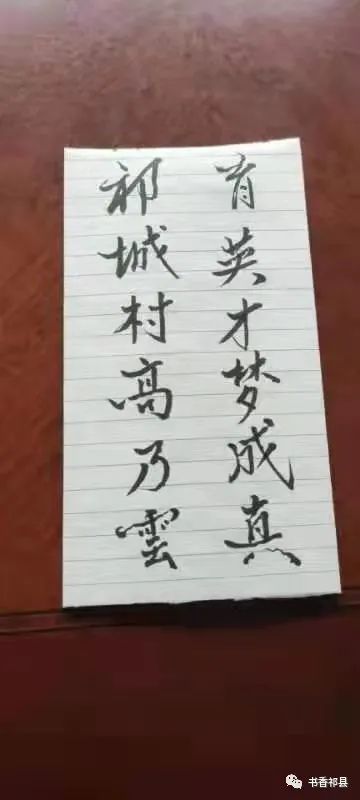 育英才梦成真
祁城村高乃雲
书香祁县